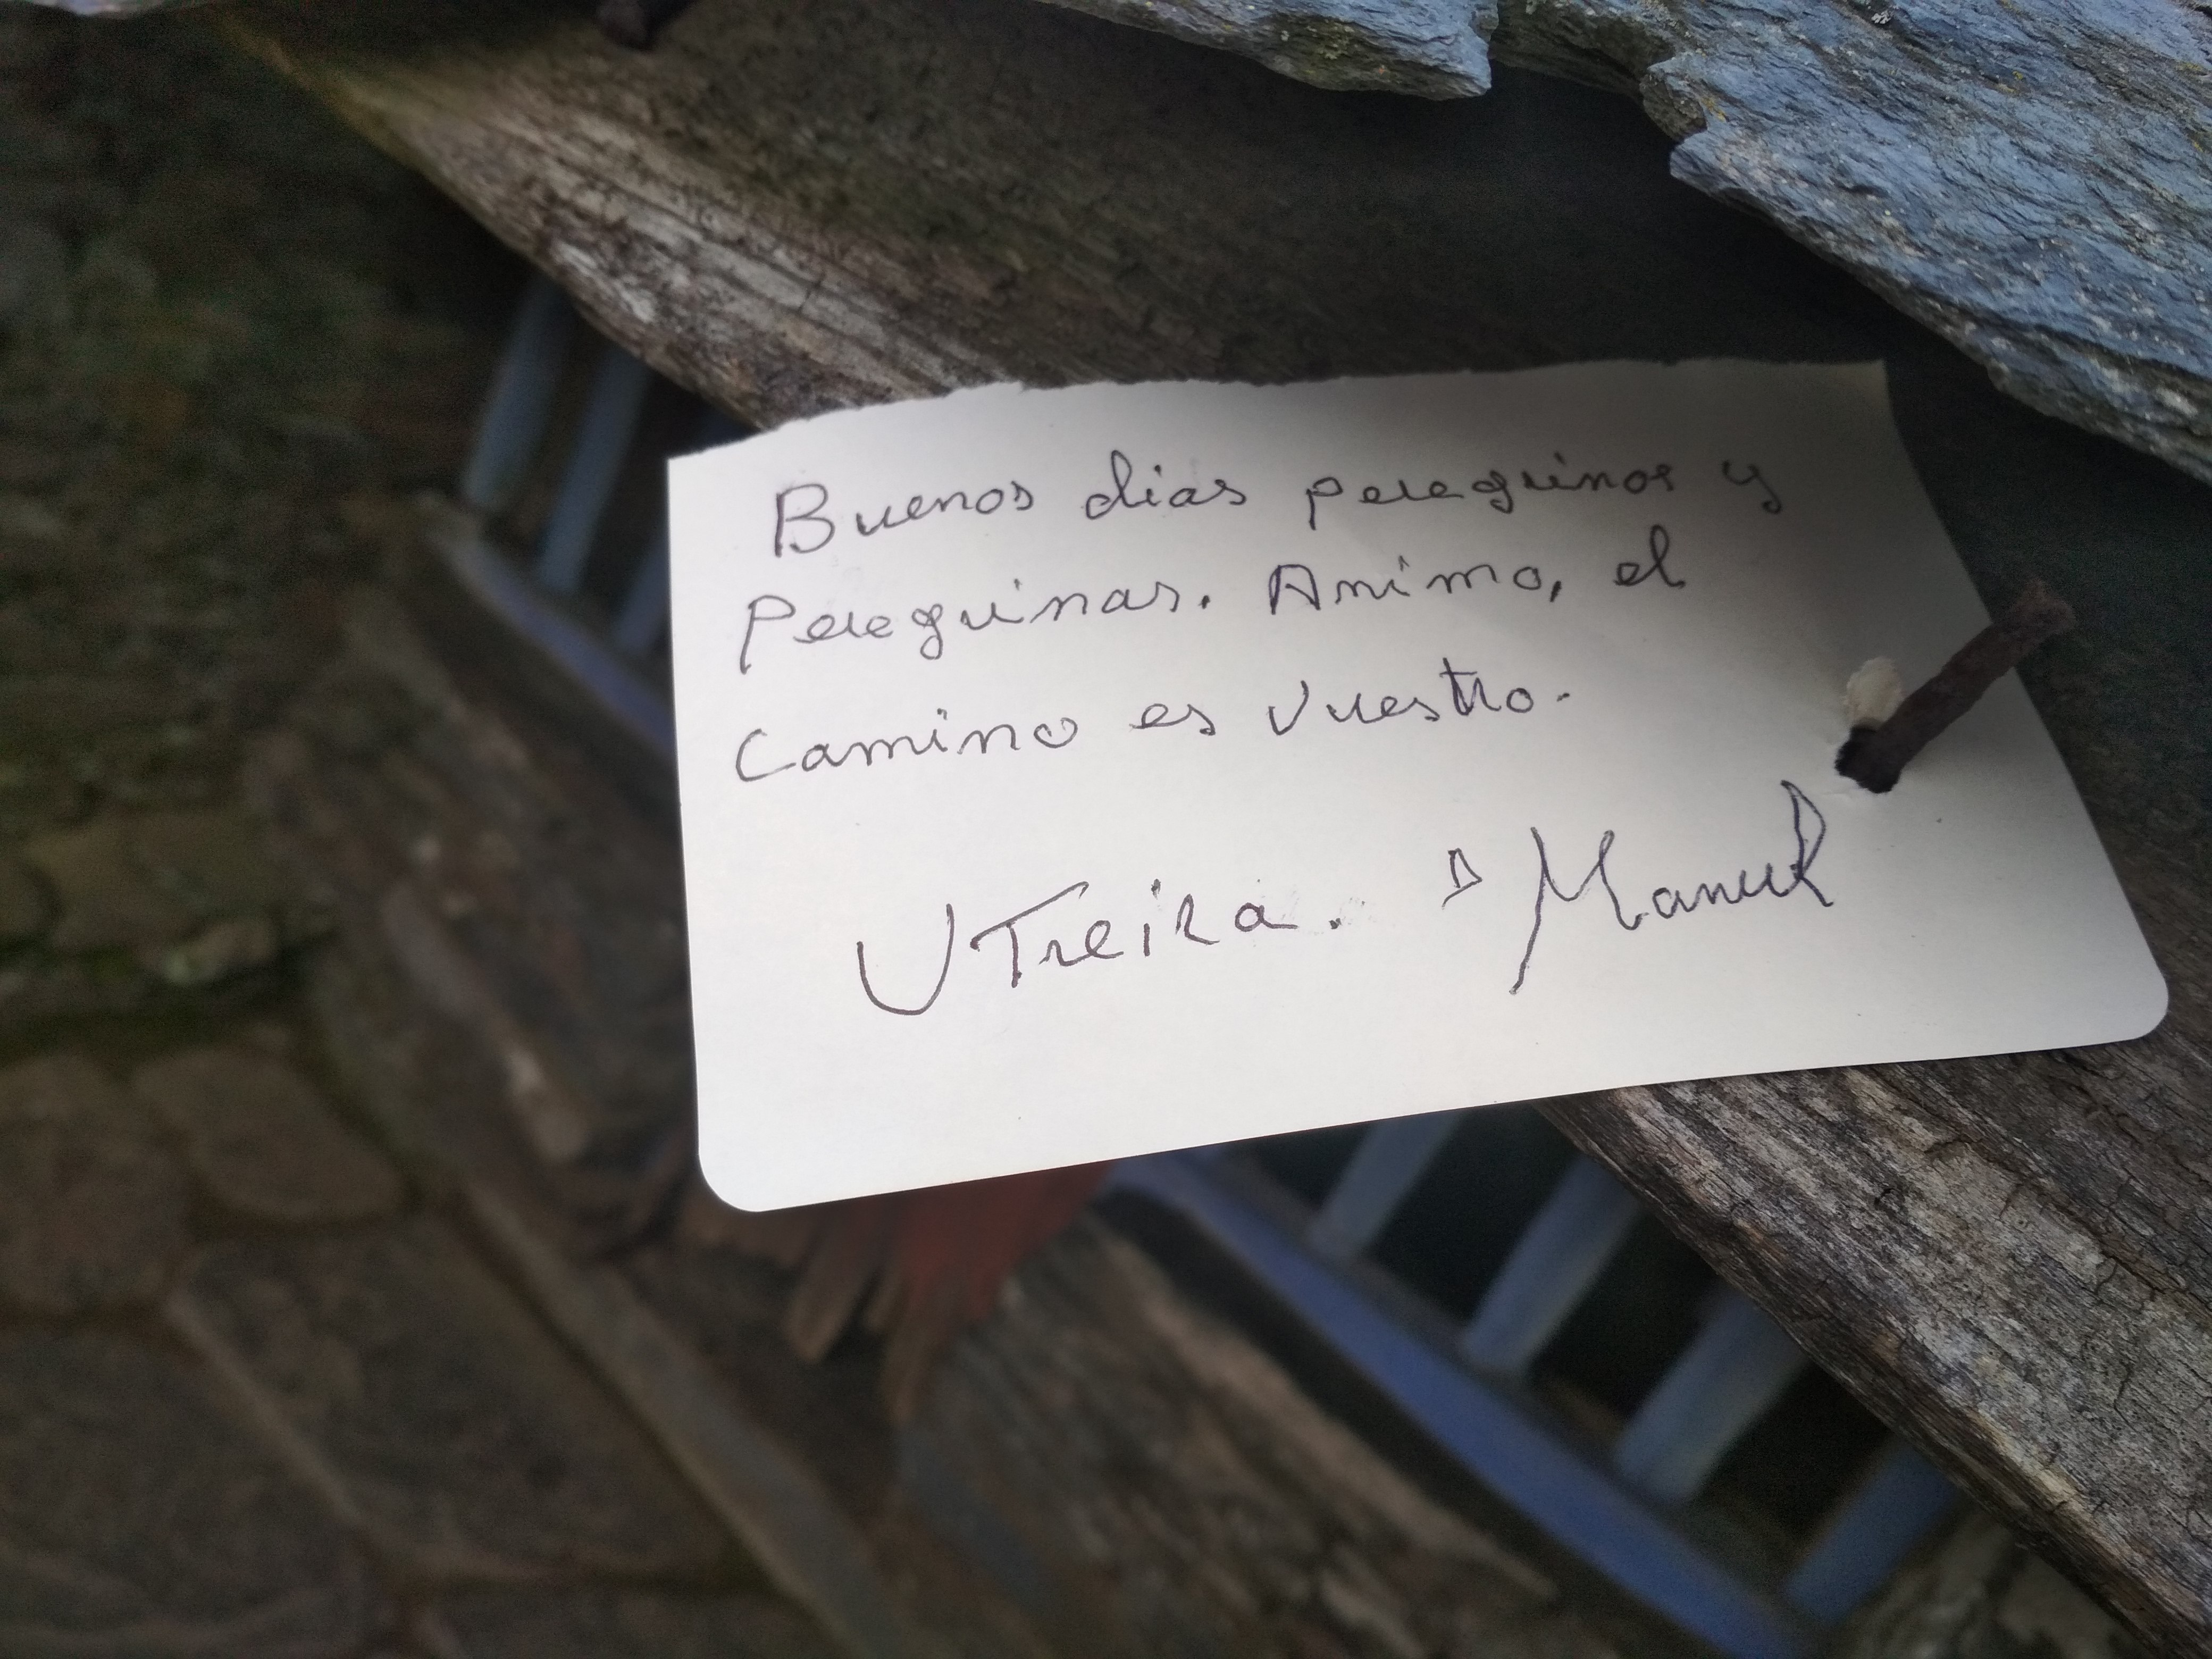 Buenos dias peregrinos y
Peregrinas. Animo, el
Camino es vuestro.
UTreira. D Manuel